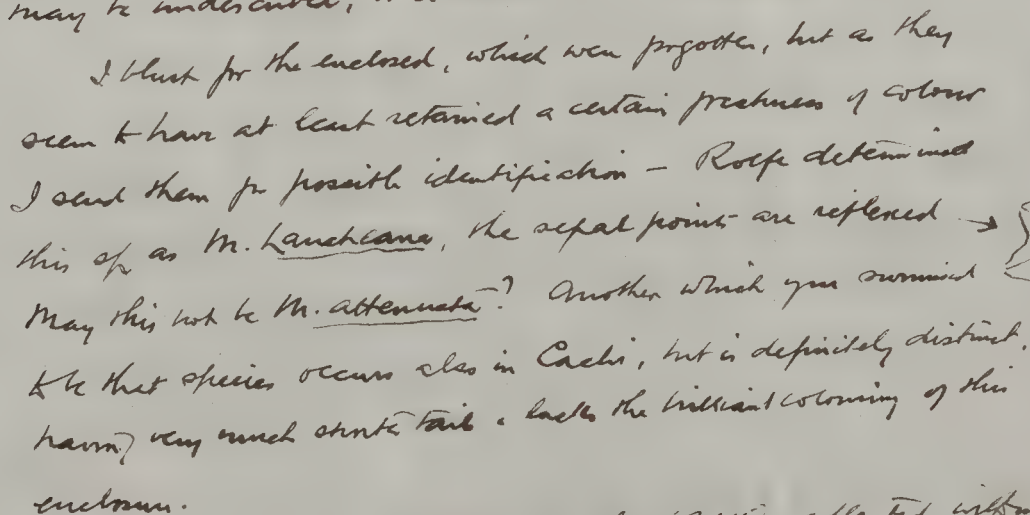 may be undescribed,
I blush for the enclosed, which were forgotten, but as they
seem to have at least retained a certain freshness of colour
I send them for possible identification — Rolfe determined
this sp as M. Lancheana, the sepal points are reflexed →
May this not be M. attenuata? Another which you surmised
to be that species occurs also in Cachi, but is definitely distinct,
having very much shorter tails & lacks the brilliant colouring of this
enclosure.